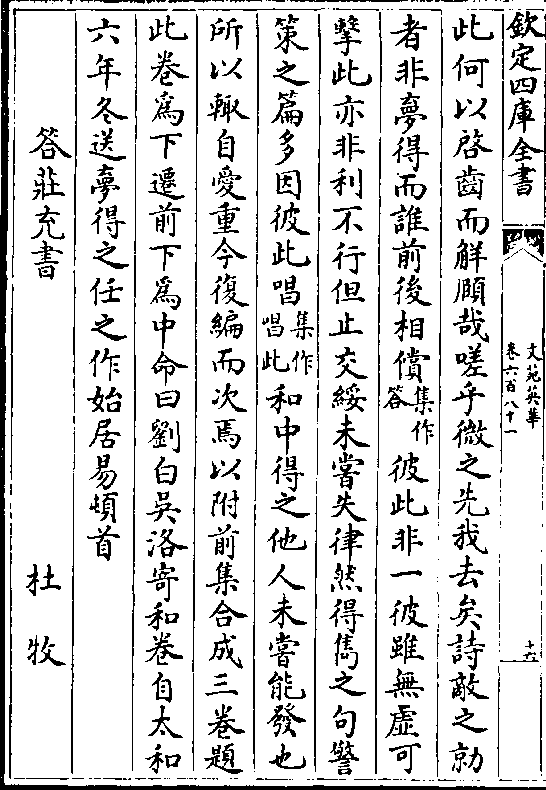 欽定四庫全書
文苑英華
卷六百八十一
十六
此何以啓齒而解頤哉嗟乎微之先我去矣詩敵之勍
者非夢得而誰前後相償集作答彼此非一彼雖無虛可
擊此亦非利不行但止交綏未嘗失律然得雋之句警
策之篇多因彼此唱集作唱此和中得之他人未嘗能發也
所以輙自愛重今復編而次焉以附前集合成三卷題
此卷爲下遷前下爲中命曰劉白吳洛寄和卷自太和
六年冬送夢得之任之作始居易頓首
答莊充書　杜牧